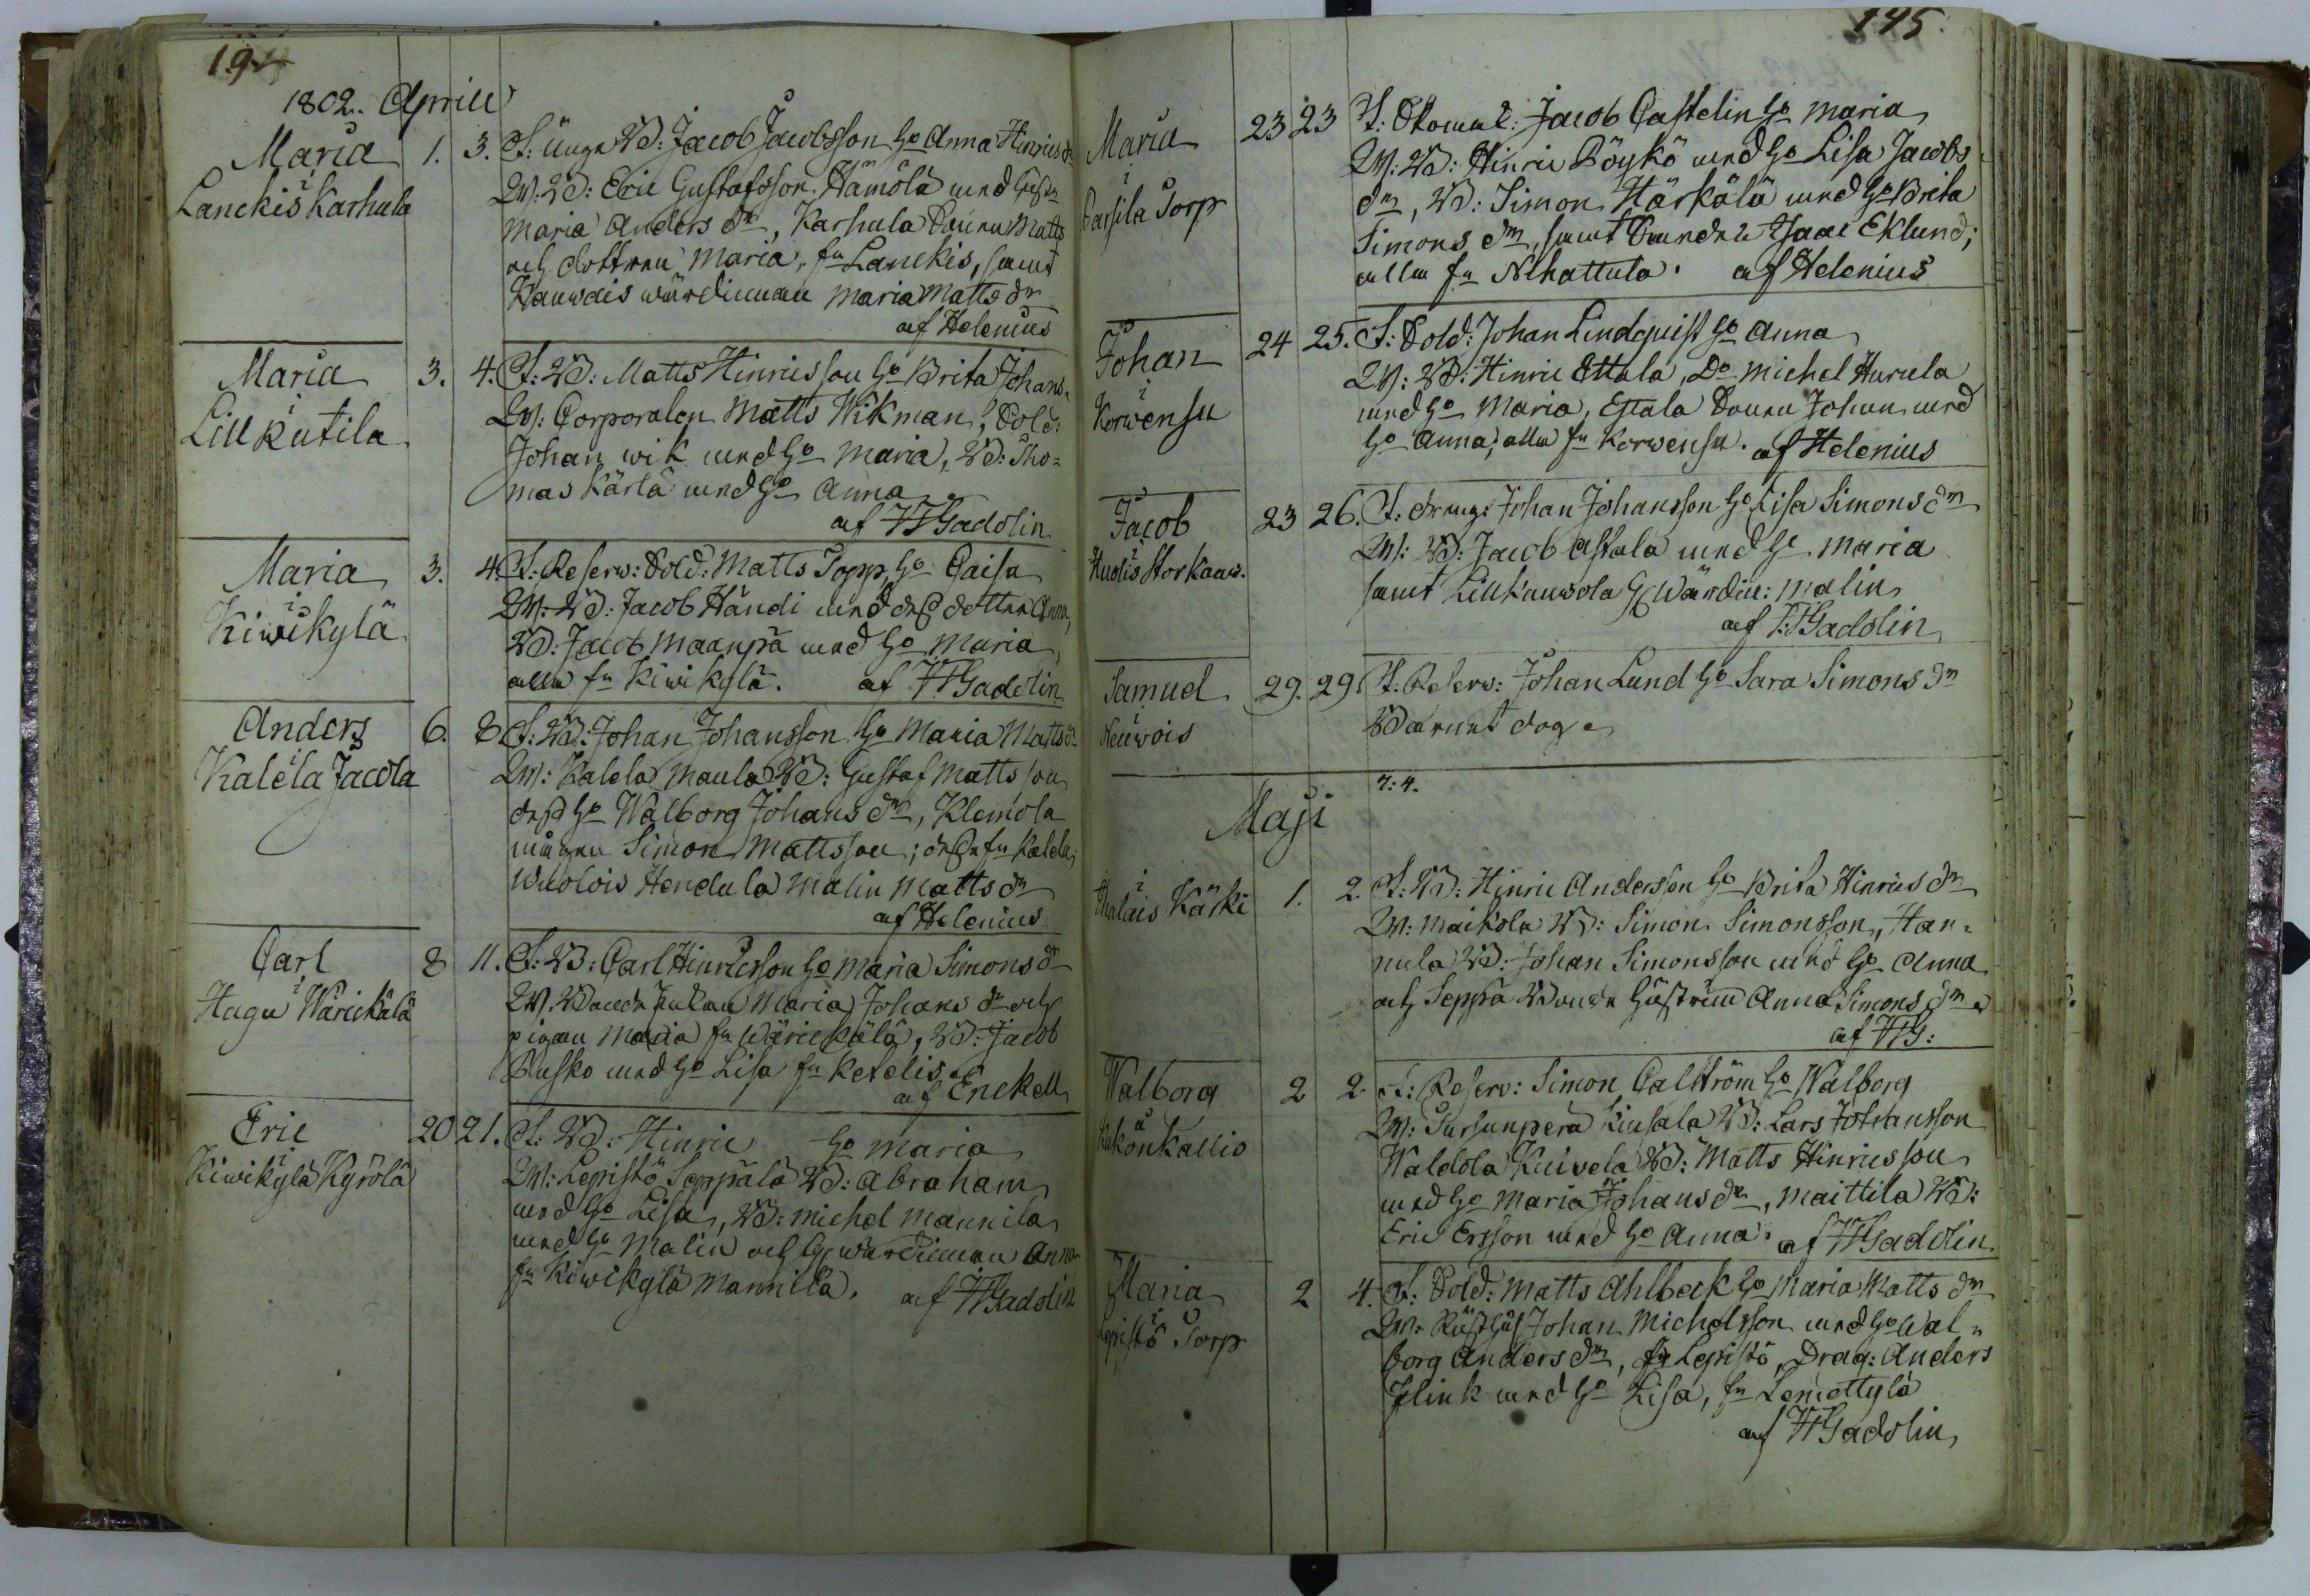 194
1802. Aprill
Maria 1. 3. F: Unga Bd: Jacob Jacobsson Ho Anna Hinrics dr
i
Lanckis Karhula
W: Bd: Eric Gustafsson Hämölä med
Maria Anders dr, Karhula Sonen Matts
och dottren Maria, fn Lanckis, samt
wärdinnan Maria Matts dr
af Helenius
Maria 3. 4. F: Bd: Matts Hinricsson Ho Brita Johans
i
Lill kutila
W: Corporalen Matts Wikman, Sold:
Johan Wik med Ho Maria, Bd: Tho=
mas Kärlä med Ho Anna
af JFGadolin
Maria 3. 4. F: Reserv: Sold: Matts Topp Ho Caisa
i
Kiwikylä
W: Bd: Jacob Händi med dess dotter Anna,
Bd: Jacob Maanpä med Ho Maria,
alla fn Kiwikylä. af JFGadolin
Anders 6. 8 F: Bd: Johan Johansson Ho Maria Matts dr
i
Kalela Jacola
W: Kalela Maula Bd: Gustaf Matts son
dess Ho Walborg Johans dr, Klemola
mågen Simon Mattsson; desse fn Kalela,
Wuolois Hendula Malin Matts dr
af Helenius
Carl 8 11. F: Bd: Carl Hinricsson Ho Maria Simons dr
i
Hagu Wärickälä
W: Bonde Enkan Maria Johans dr och
pigan Maria fn Wärickälä, Bd: Jacob
Rusko med Ho Lisa fn Ketelis.
af Enckell
Eric 20 21. F: Bd: Hinric Ho Maria
i
Kiwikylä Kyrölä
W: Lepistö Seppälä Bd: Abraham
med Ho Lisa, Bd: Michel Mannila
med Ho Malin och Gl wärdinnan Anna
fn Kiwikylä Mannilla. af JFGadolin
195.
Maria 23 23 F: Skomak: Jacob Castelin Ho Maria
i
Torp
W: Bd: Hinric Böykö med Ho Lisa Jacobs
dr, Bd: Simon Härkälä med Ho Brita
Simons dr, samt Isaac Eklund;
alla fn Nihattula. af Helenius
Johan 24 25. F: Sold: Johan Lindquist Ho Anna
i
Korwensu
W: Bd: Hinric Ettala, Do Michel Huruela
med Ho Maria, Ettala Sonen Johan med
Ho Anna; alla fn Korwensu. af Helenius
Jacob 23 26. F: dreng: Johan Johansson Ho Lisa Simons dr
i
W: Bd: Jacob Astala med Ho Maria
samt Lillkauwola Gl wärdin: Malin
af JFGadolin
Samuel 29. 29. F: Reserv: Johan Lund Ho Sara Simons dr
Neuwois
Barnet dog
7: 4.
Maji
i
Kärki 1. 2. F: Bd: Hinric Andersson Ho Brita Hinrics dr
W: Maikola Bd: Simon Simonsson, Han=
nula Bd: Johan Simonsson med Ho Anna
och Seppä Bonde Hustrun Anna Simons dr
af JFG:
Walborg 2 2. F: Reserv: Simon Calström Ho Walborg
W: Sursunperä Kiusala Bd: Lars Johansson
Waldola Kuivela Bd: Matts Hinricsson
med Ho Maria Johans dr, Maittila Bd:
Eric Ersson med Ho Anna. af JFGadolin
Maria 2 4. F: Sold: Matts Ahlbeck Ho Maria Matts dr
i
Lepistö Torp
W: Johan Michelsson med Ho Wal=
borg Anders dr, fn Lepistö, Drag: Anders
Flink med Ho Lisa, fn Lemettylä
af JFGadolin